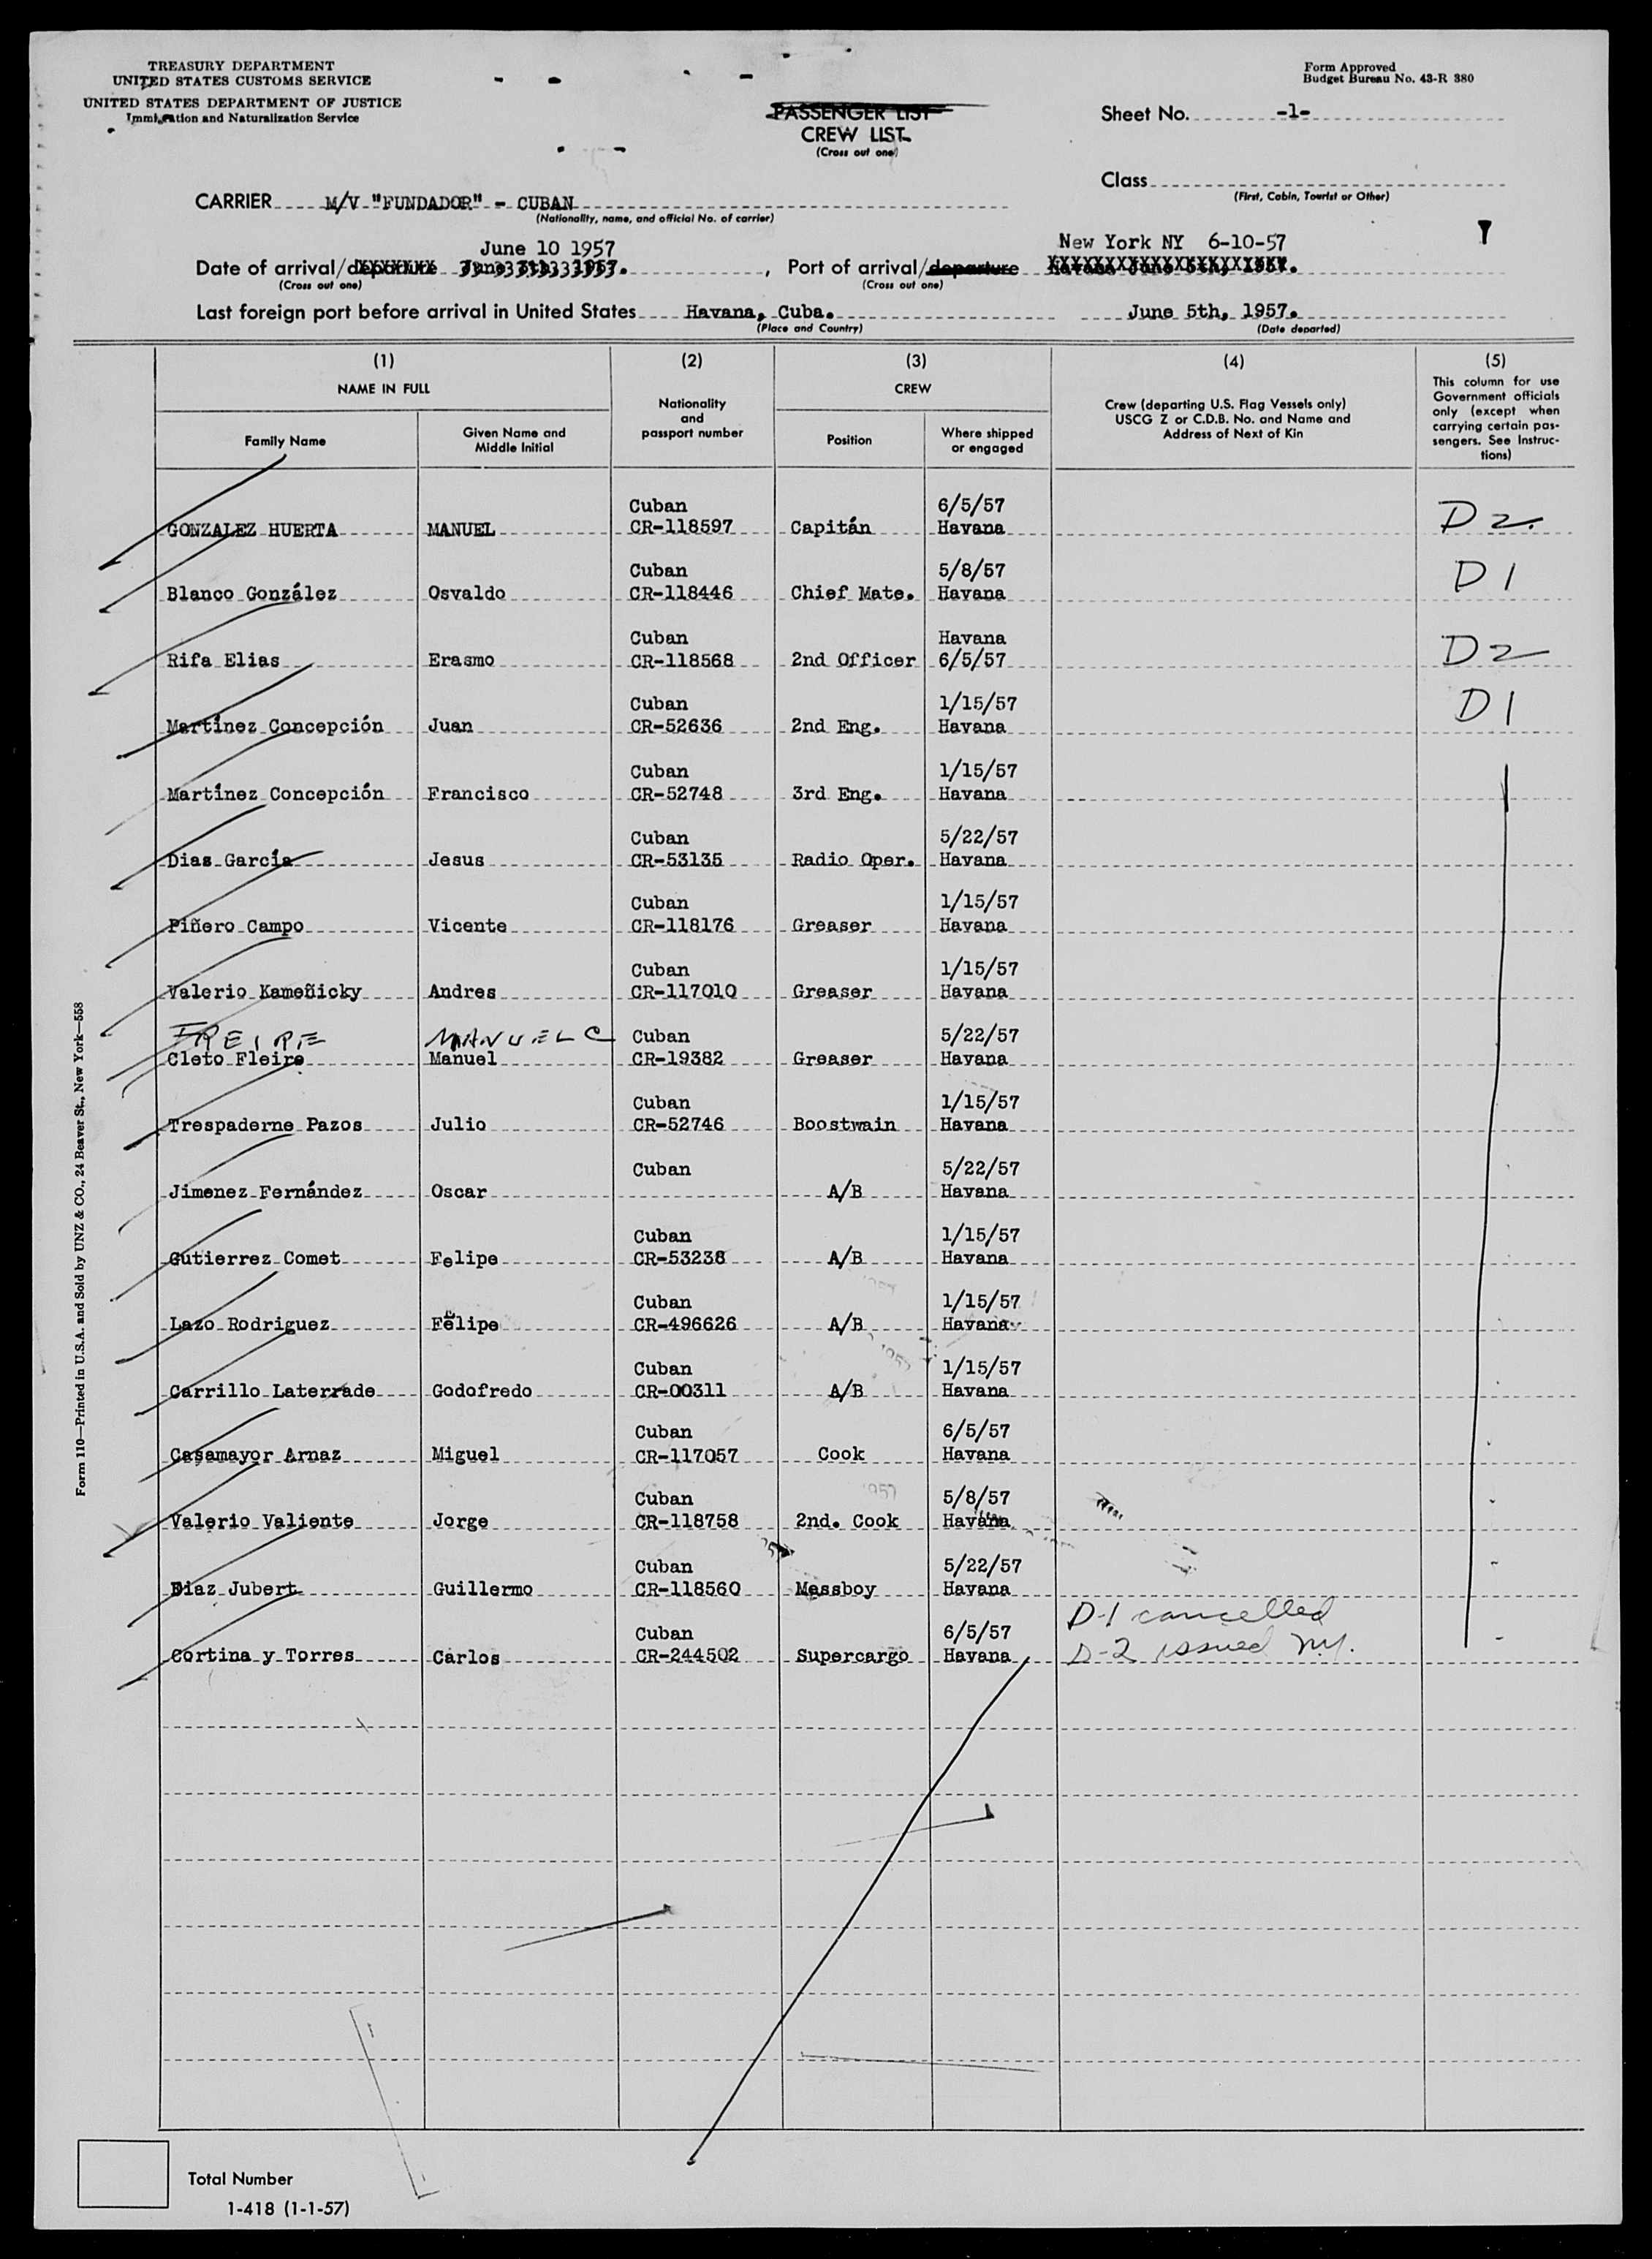 TREASURY DEPARTMENT
UNITED STATES CUSTOMS SERVICE
UNITED STATES DEPARTMENT OF JUSTICE
Immigration and Naturalization Service
PASSENGER LIST
CREW LIST
(Cross out one)
Form Approved
Budget Bureau No. 43-R 380
Sheet No. -1-
Class
(First, Cabin, Tourist or Other)
CARRIER M/V "FUNDADOR" - CUBAN
(Nationality, name, and official No. of carrier)
June 10 1957
New York NY 6-10-57
Date of arrival/departure , Port of arrival/departure Havana June 5th, 1957.
(Cross out one) (Cross out one)
Last foreign port before arrival in United States Havana, Cuba. June 5th, 1957.
(Place and Country) (Date departed)
(1) (2) (3) (4) (5)
NAME IN FULL
Family Name
Given Name and
Middle Initial
Nationality
and
passport number
CREW
Position
Where shipped
or engaged
Crew (departing U.S. Flag Vessels only)
USCG Z or C.D.B. No. and Name and
Address of Next of Kin
This column for use
Government officials
only (except when
carrying certain pas-
sengers. See Instruc-
tions)
Cuban 6/5/57
GONZALEZ HUERTA MANUEL CR-118597 Capitán Havana D2.
Cuban 5/8/57
Blanco González Osvaldo CR-118446 Chief Mate. Havana D1
Cuban Havana
Rifa Elias Erasmo CR-118568 2nd Officer 6/5/57 D2
Cuban 1/15/57
Martínez Concepción Juan CR-52636 2nd Eng. Havana D1
Cuban 1/15/57
Martínez Concepción Francisco CR-52748 3rd Eng. Havana
Cuban 5/22/57
Dias García Jesus CR-53135 Radio Oper. Havana
Cuban 1/15/57
Piñero Campo Vicente CR-118176 Greaser Havana
Cuban 1/15/57
Valerio Kameñicky Andres CR-117010 Greaser Havana
FREIRE MANUEL C Cuban 5/22/57
Cleto Fleire Manuel CR-19382 Greaser Havana
Cuban 1/15/57
Trespaderne Pazos Julio CR-52746 Boostwain Havana
Cuban 5/22/57
Jimenez Fernández Oscar A/B Havana
Cuban 1/15/57
Gutierrez Comet Felipe CR-53238 A/B Havana
Cuban 1/15/57
Lazo Rodriguez Felipe CR-496626 A/B Havana
Cuban 1/15/57
Carrillo Laterrade Godofredo CR-00311 A/B Havana
Cuban 6/5/57
Casamayor Arnaz Miguel CR-117057 Cook Havana
Cuban 5/8/57
Valerio Valiente Jorge CR-118758 2nd. Cook Havana
Cuban 5/22/57
Diaz Jubert Guillermo CR-118560 Messboy Havana
D-1 cancelled
Cuban 6/5/57
Cortina y Torres Carlos CR-244502 Supercargo Havana D-2 issued NY.
Form 110—Printed in U.S.A. and Sold by UNZ & CO., 24 Beaver St., New York—558
Total Number
1-418 (1-1-57)